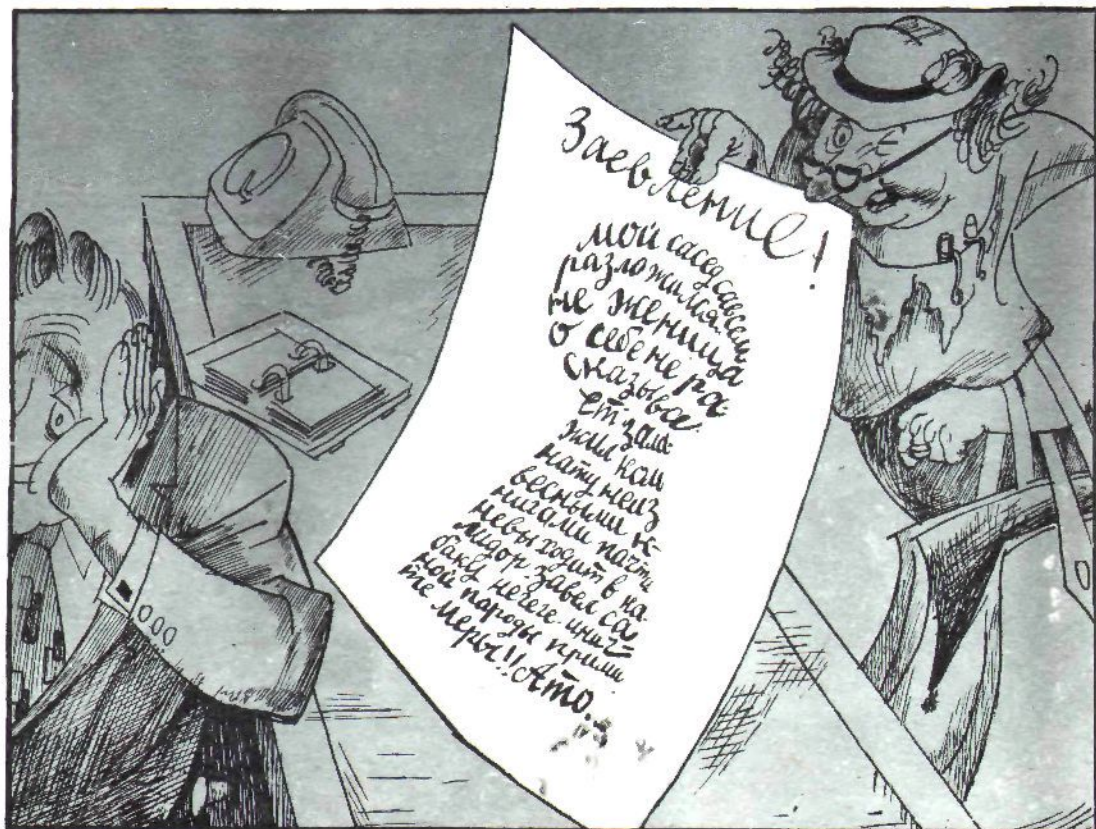 Заевление!
мой сасед савсем
разложился.
не женица
о себе не ра-
сказыва-
ет зала-
жил ком
нату неиз
весными к-
нигами пачти
невыходит в ка-
лидор. завел са-
баку нечеге-инич-
ной пароды прими-
те меры!! Ато.